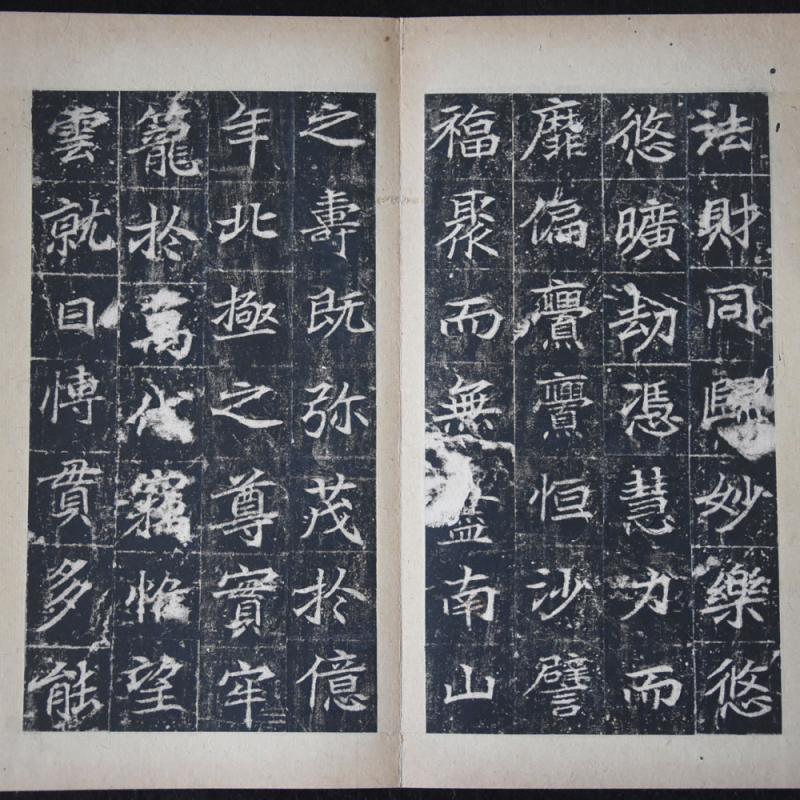 法財同歸妙樂悠
悠曠劫憑慧力而
靡偏亹亹恒沙譬
福聚而無盡南山
之壽既弥茂於億
年北極之尊實牢
籠於萬代竊望
雲就日博貫多能